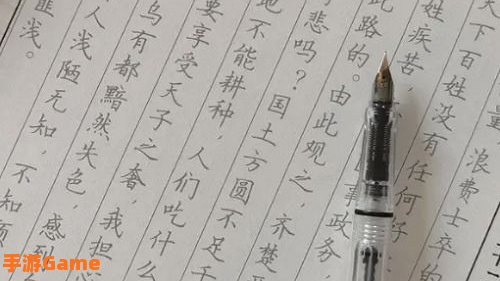 重，浪费士卒的
天下百姓没有任何好
姓疾苦，
事政务，
此路的。由此观之，齐楚
悲吗？国土方圆不足千
地不能耕种，人们吃什么
要享受天子之奢，我担
乌有都黯然失色，感到
人浅陋无知，不知
匪浅。
手游Game